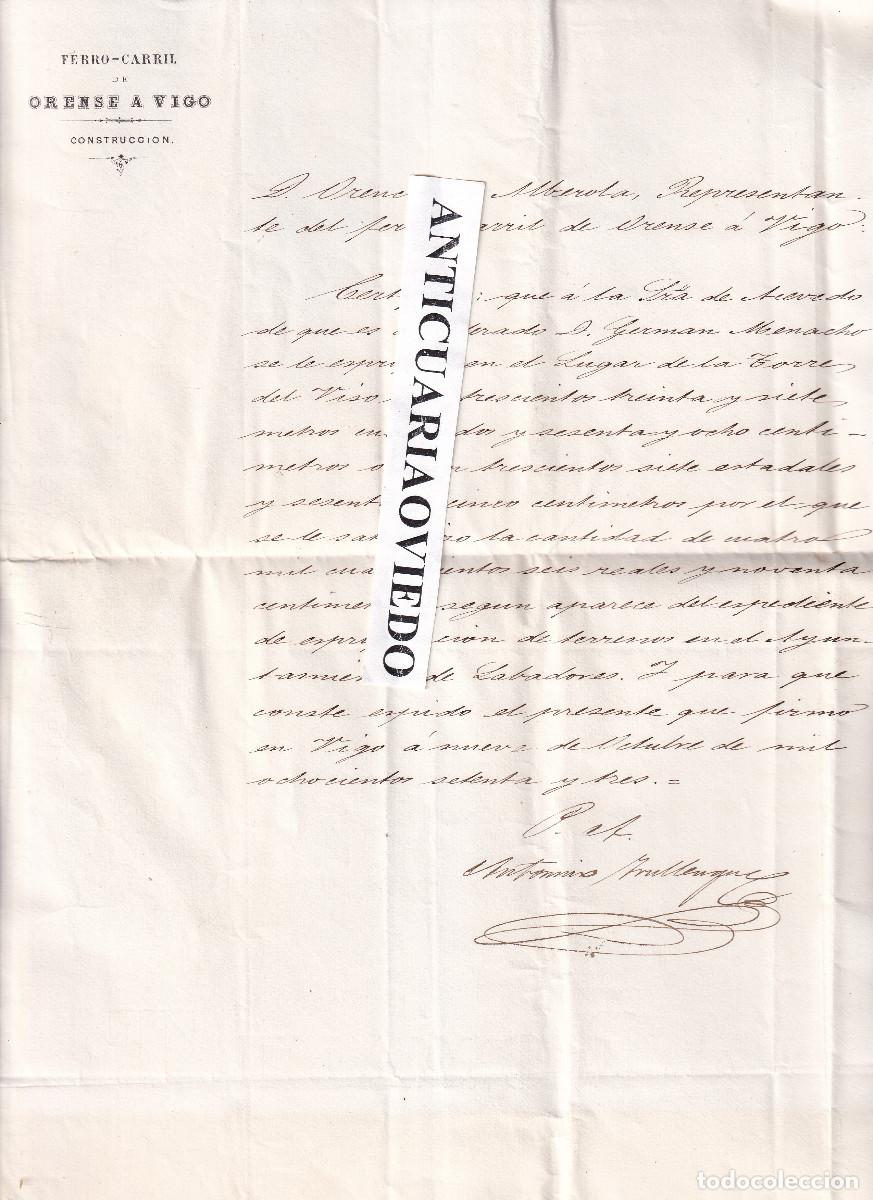 FERRO-CARRIL
DE
ORENSE A VIGO
CONSTRUCCION.
D. Oren Alberola, Representan-
te del fer arril de Orense á Vigo.
Cert : que á la Sra de Acevedo
de que es erado D. German Menacho
se le espr en el Lugar de la Torre
del Viso trescientos treinta y siete
metros cu dos y sesenta y ocho centi-
metros o trescientos siete estadales
y sesent cinco centimetros por el que
se le sat zo la cantidad de cuatro
mil cua ientos seis reales y noventa
centime segun aparece del espediente
de espr cion de terrenos en el Ayun-
tamie de Labadores. Y para que
conste espido el presente que firmo
en Vigo á nueve de Octubre de mil
ochocientos setenta y tres.=
P. A.
Antonino
ANTICUARIAOVIEDO
todocoleccion